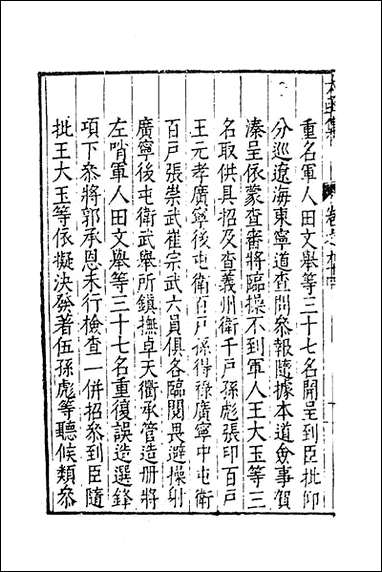 重名軍人田文舉等三十七名開呈到臣批仰
分巡遼海東寧道查問叅報隨據本道僉事賀
溱呈依蒙查審將臨操不到軍人王大玉等三
名取供具招及查義州衛千戶孫彪張印百戶
王元孝廣寧後屯衛百戶孫得祿廣寧中屯衛
百戶張崇武崔宗武六員俱各臨閱畏避操射
廣寧後屯衛武舉所鎮撫卓天衢承管造冊將
左哨軍人田文舉等三十七名重復誤造選鋒
項下叅將郭承恩未行檢查一併招叅到臣隨
批王大玉等依擬決發著伍孫彪等聽候類叅